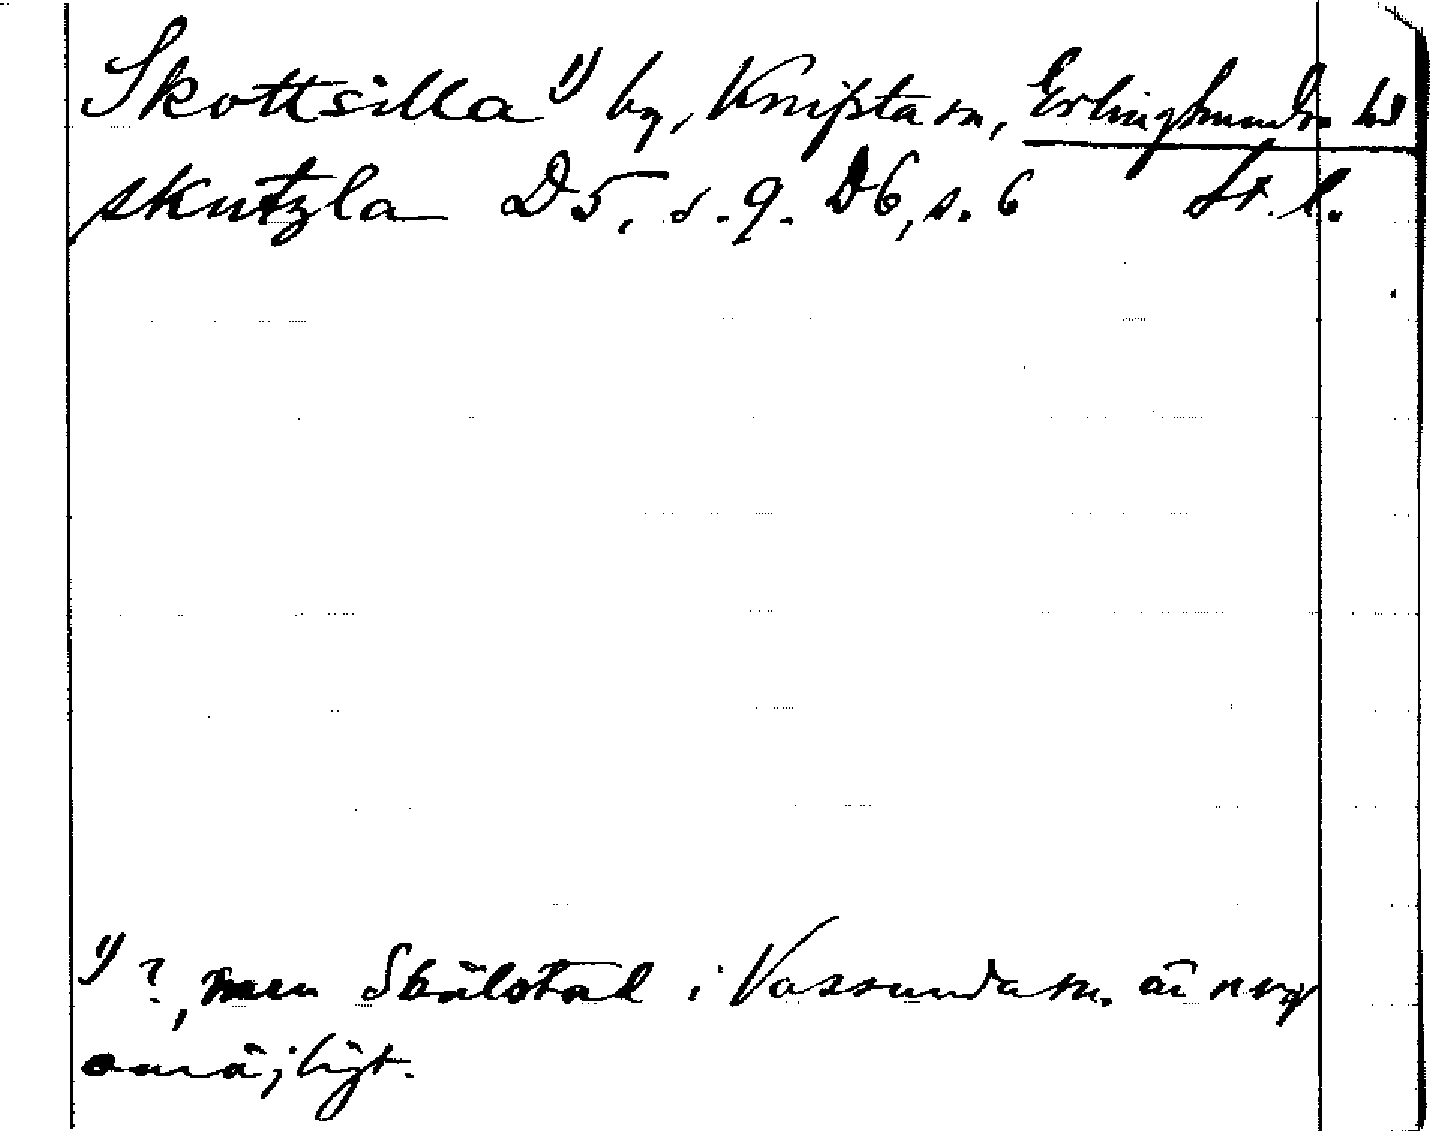 Skottsilla 1) by, Knifsta sn, Erlinghundra hd
skutzla D5, s. 9. D6, s. 6 St. l.
1) ?, men Skälstad i Vassunda sn. är nog
omöjligt.